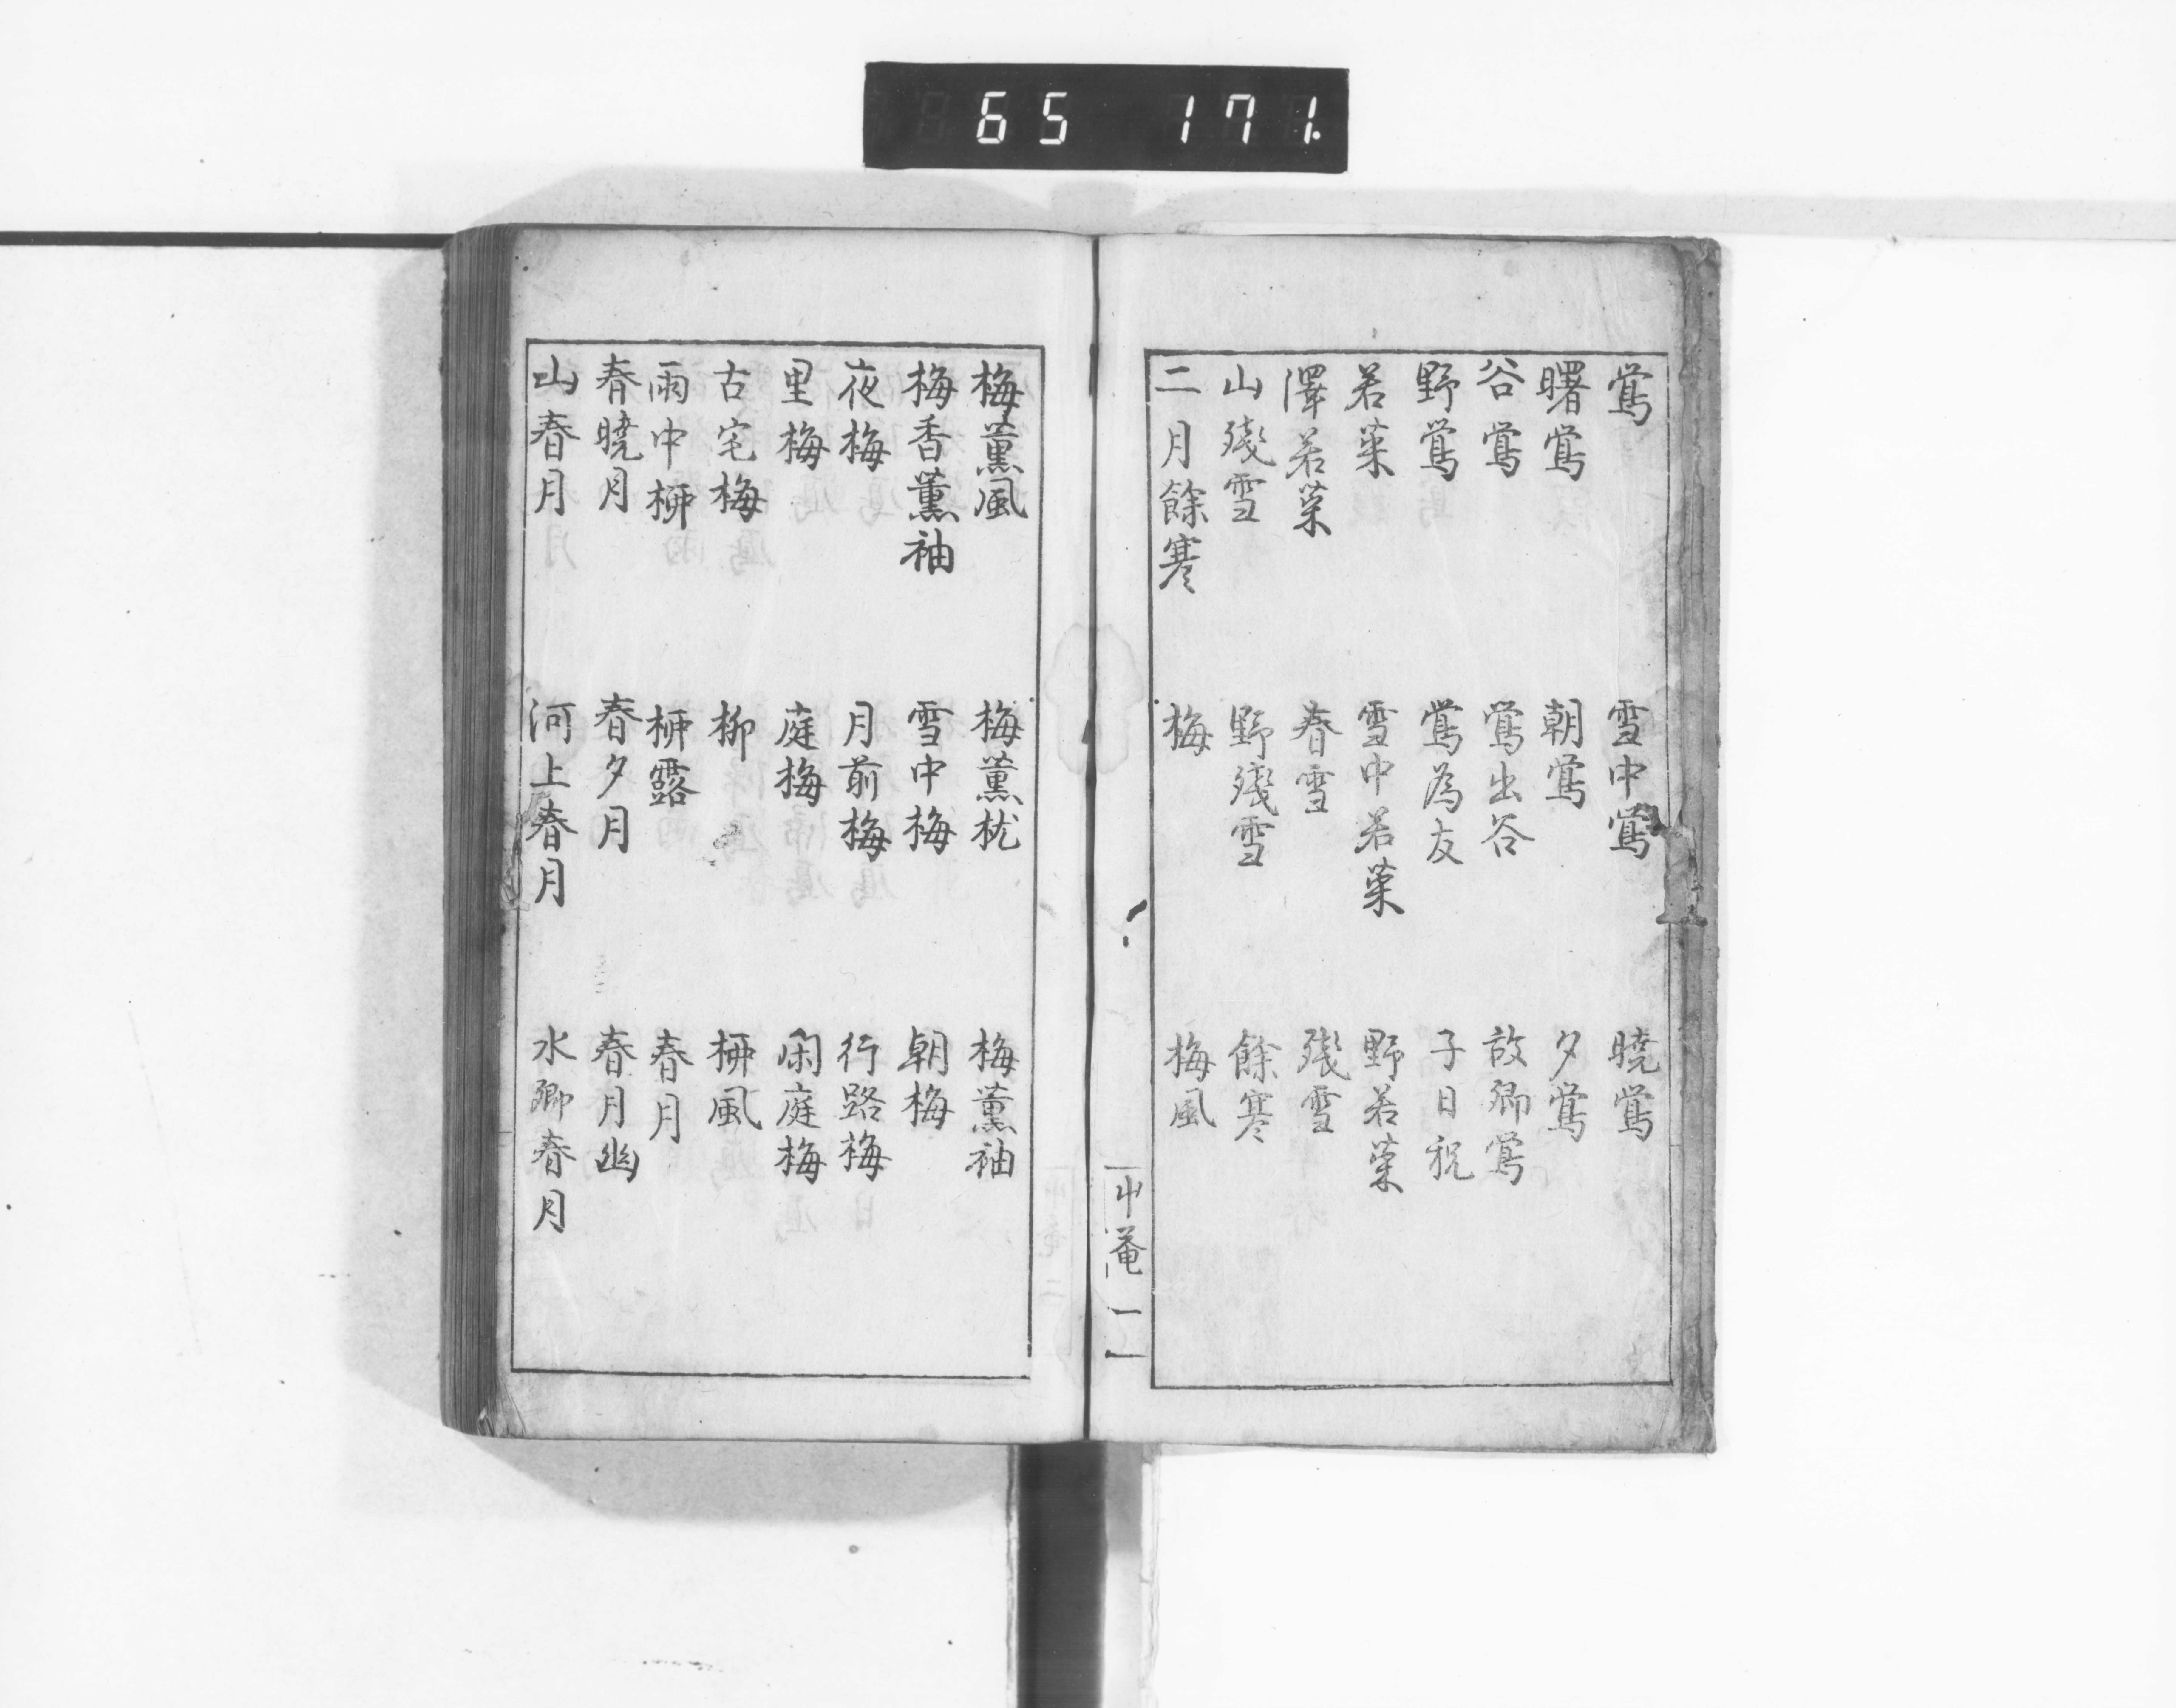 65 171.
鶯 雪中鶯 曉鶯
曙鶯 朝鶯 夕鶯
谷鶯 鶯出谷 故郷鶯
野鶯 鶯為友 子日祝
若菜 雪中若菜 野若菜
澤若菜 春雪 残雪
山残雪 野残雪 餘寒
二月餘寒 梅 梅風
中菴 一
梅薫風 梅薫枕 梅薫袖
梅香薫袖 雪中梅 朝梅
夜梅 月前梅 行路梅
里梅 庭梅 閑庭梅
古宅梅 柳 柳風
雨中柳 柳露 春月
春曉月 春夕月 春月幽
山春月 河上春月 水郷春月